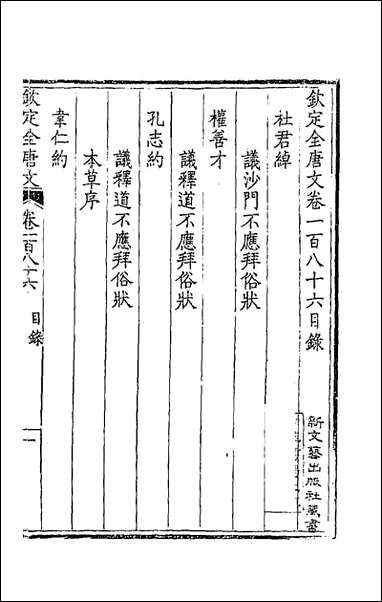 欽定全唐文卷一百八十六目錄
杜君綽
議沙門不應拜俗狀
權善才
議釋道不應拜俗狀
孔志約
議釋道不應拜俗狀
本草序
韋仁約
欽定全唐文
卷一百八十六
目錄
一
新文藝出版社藏書